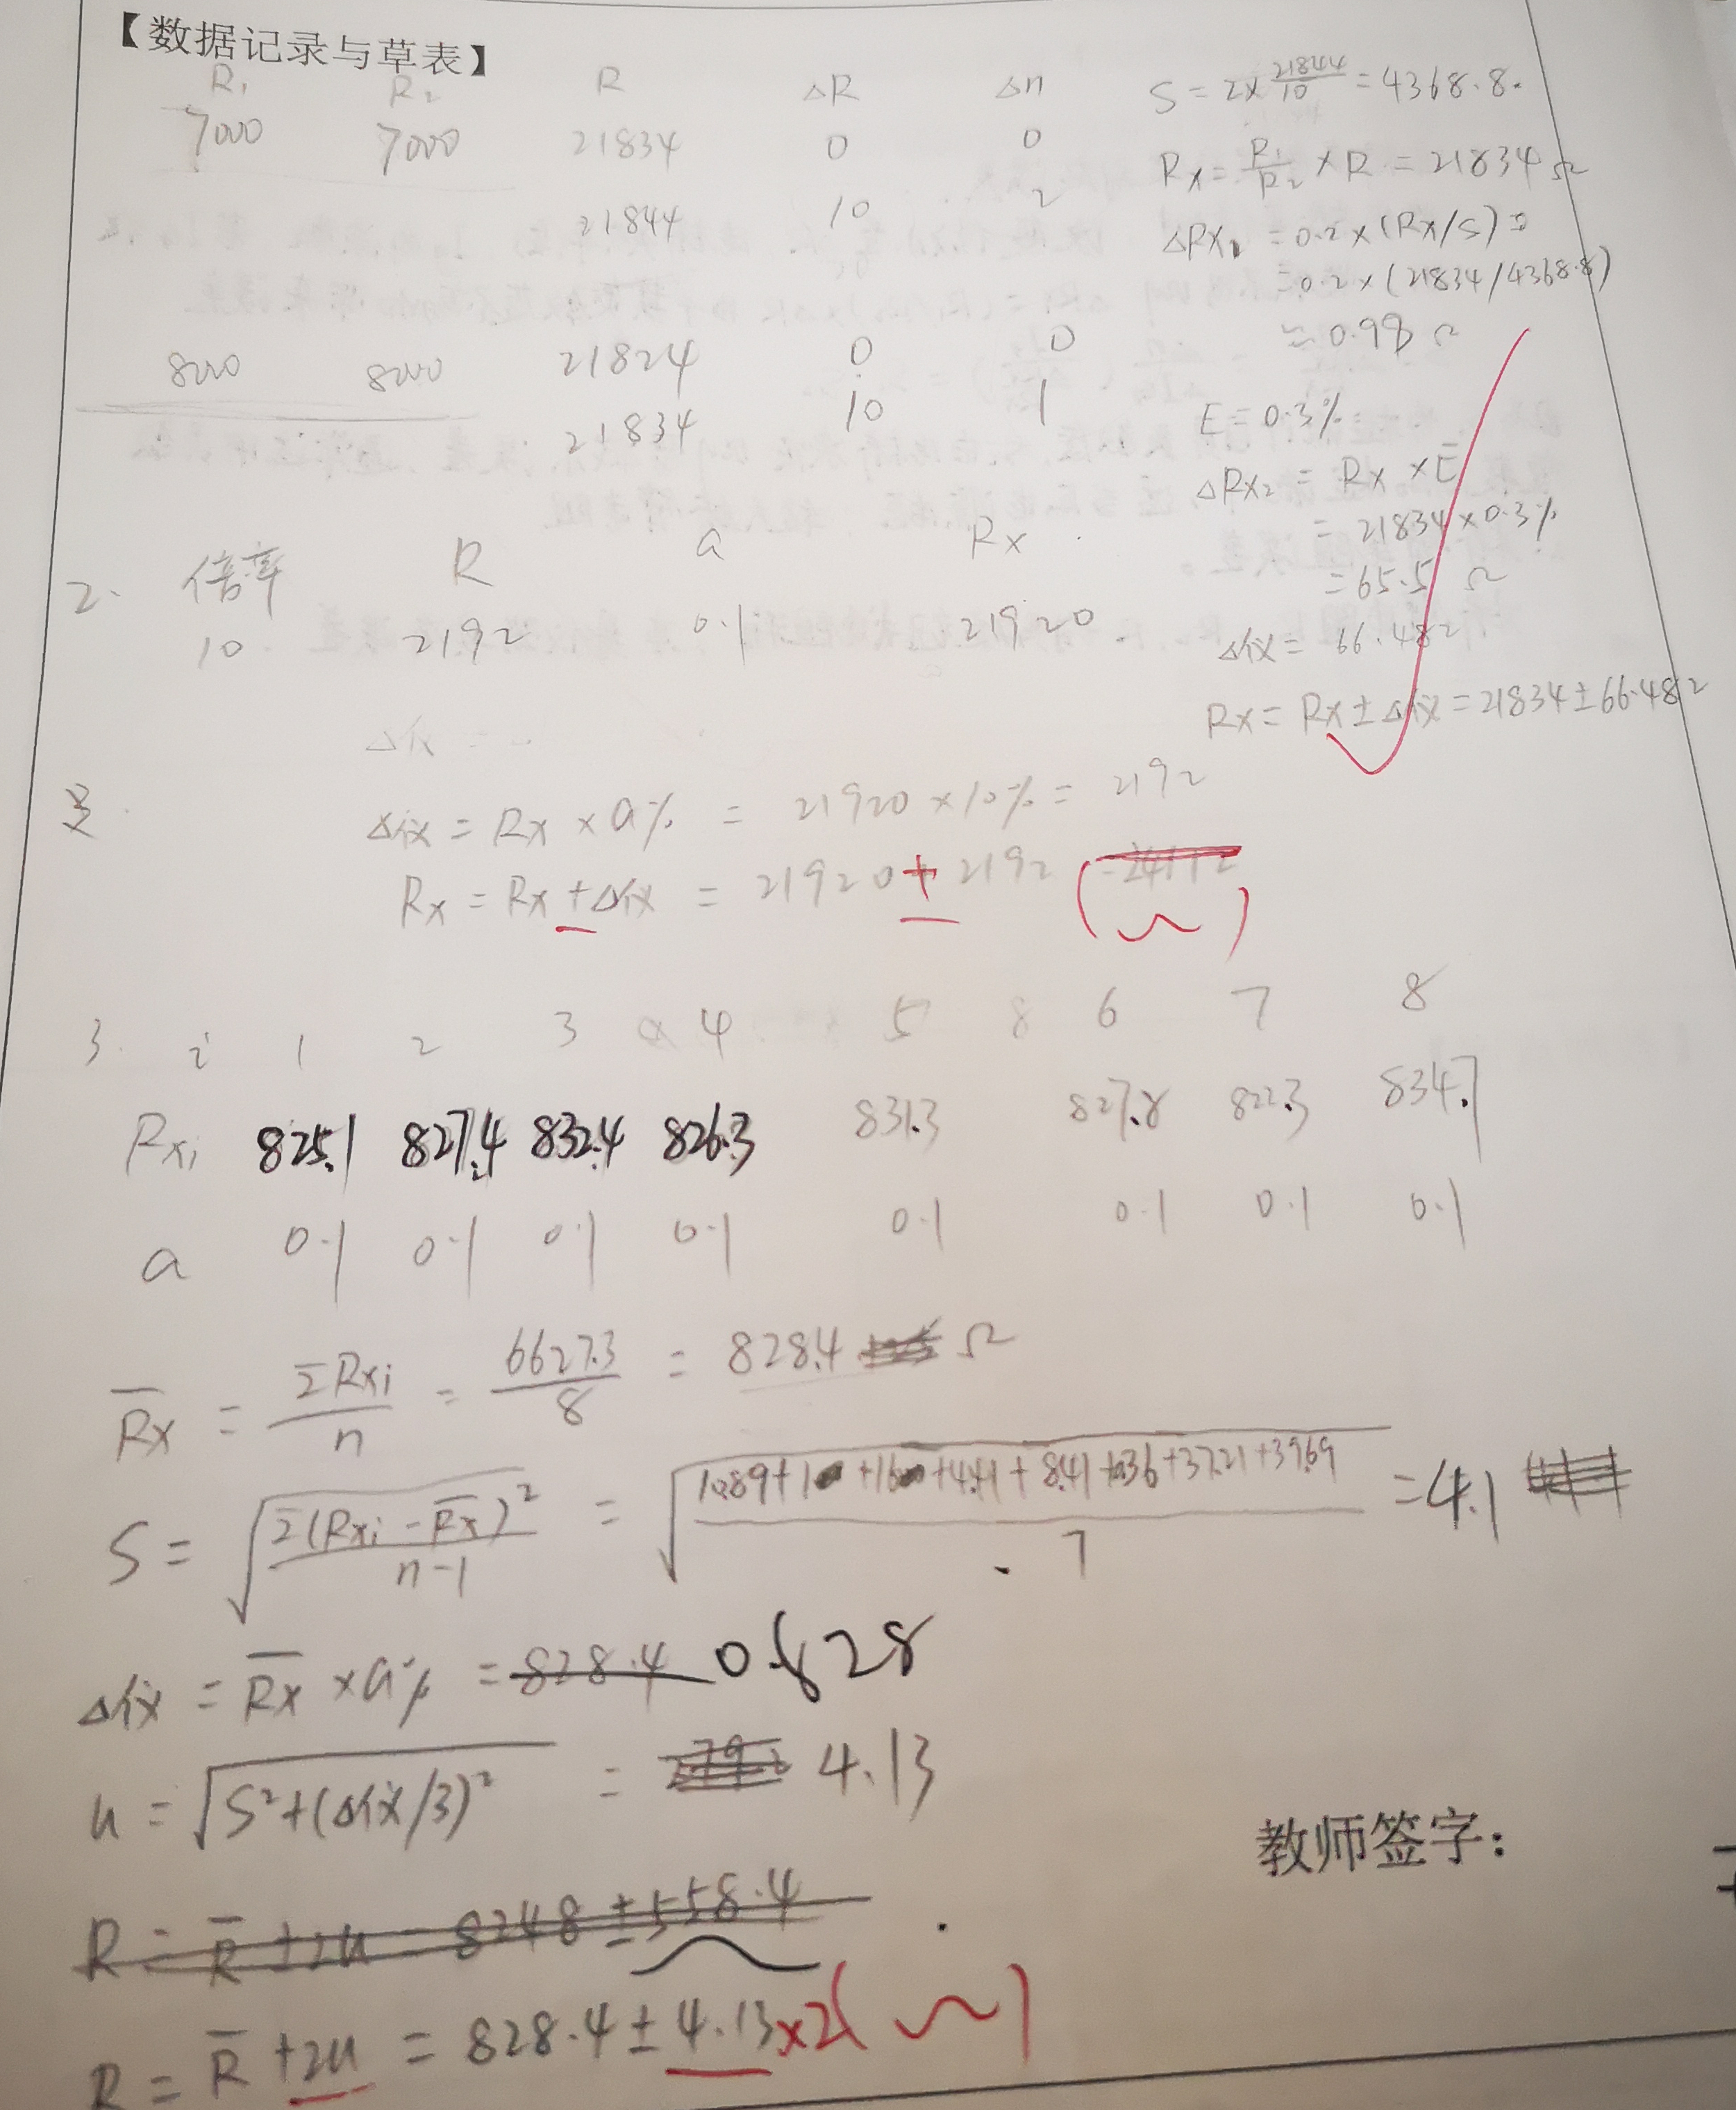 【数据记录与草表】
R₁ R₂ R ΔR Δn
7000 7000 21834 0 0
21844 10 2
8000 8000 21824 0 0
21834 10 1
S = 2×21844/10 = 4368.8.
Rx = R₁/R₂ × R = 21834 Ω
ΔRx₁ = 0.2×(Rx/S) =
= 0.2×(21834/4368.8)
= 0.98 Ω
E = 0.3%
ΔRx₂ = Rx × E
= 21834×0.3%
= 65.5 Ω
Δ仪 = 66.48Ω
Rx = Rx ± Δ仪 = 21834±66.48Ω
2. 倍率 R a Rx
10 2192 0.1 21920.
Δ仪 =
Δ仪 = Rx × a% = 21920×10% = 2192
Rx = Rx + Δ仪 = 21920 ± 2192 ( )
3. i 1 2 3 4 5 6 7 8
Rxi 825.1 827.4 832.4 826.3 831.3 827.8 822.3 834.7
a 0.1 0.1 0.1 0.1 0.1 0.1 0.1 0.1
R̄x = ΣRxi/n = 6627.3/8 = 828.4 Ω
S = √(Σ(Rxi-R̄x)²/(n-1)) = √((10.89+1+16+4.41+8.41+0.36+37.21+39.69)/7) = 4.1
Δ仪 = R̄x × a% = 828.4 0.828
u = √(S²+(Δ仪/3)²) = 4.13
教师签字:
R = R̄ ± 2u = 8248 ± 558.4
R = R̄ + 2u = 828.4 ± 4.13×2( )